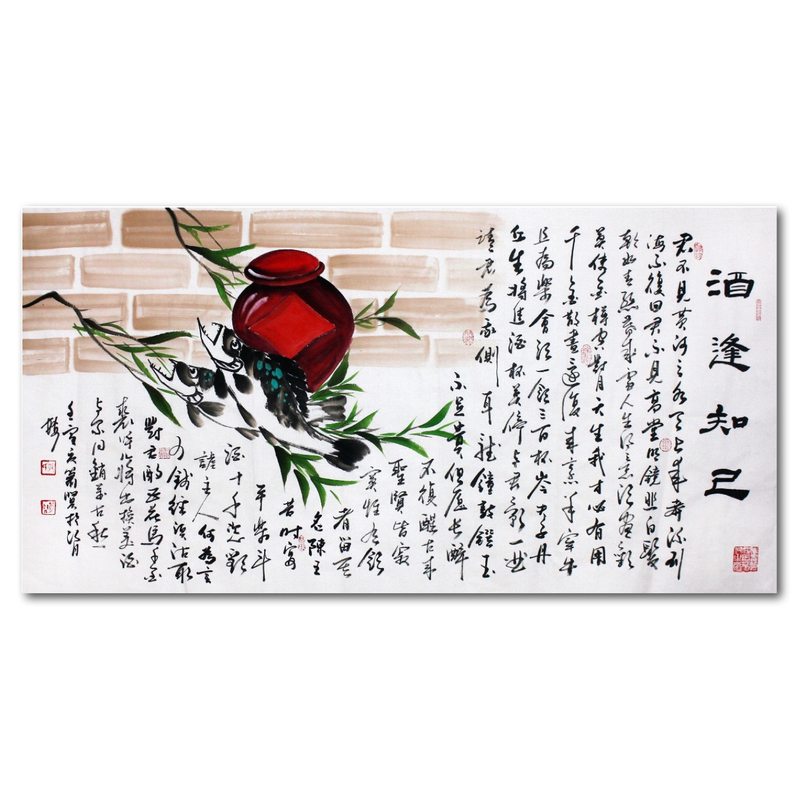 酒逢知己
君不見黃河之水天上來奔流到
海不復回君不見高堂明鏡悲白髮
朝如青絲暮成雪人生得意須盡歡
莫使金樽空對月天生我才必有用
千金散盡還復來烹羊宰牛
且為樂會須一飲三百杯岑夫子丹
丘生將進酒杯莫停與君歌一曲
請君為我側耳聽鐘鼓饌玉
不足貴但願長醉
不復醒古來
聖賢皆寂
寞惟有飲
者留其
名陳王
昔時宴
平樂斗
酒十千恣歡
謔主人何為言
少錢徑須沽取
對君酌五花馬千金
裘呼兒將出換美酒
與爾同銷萬古愁